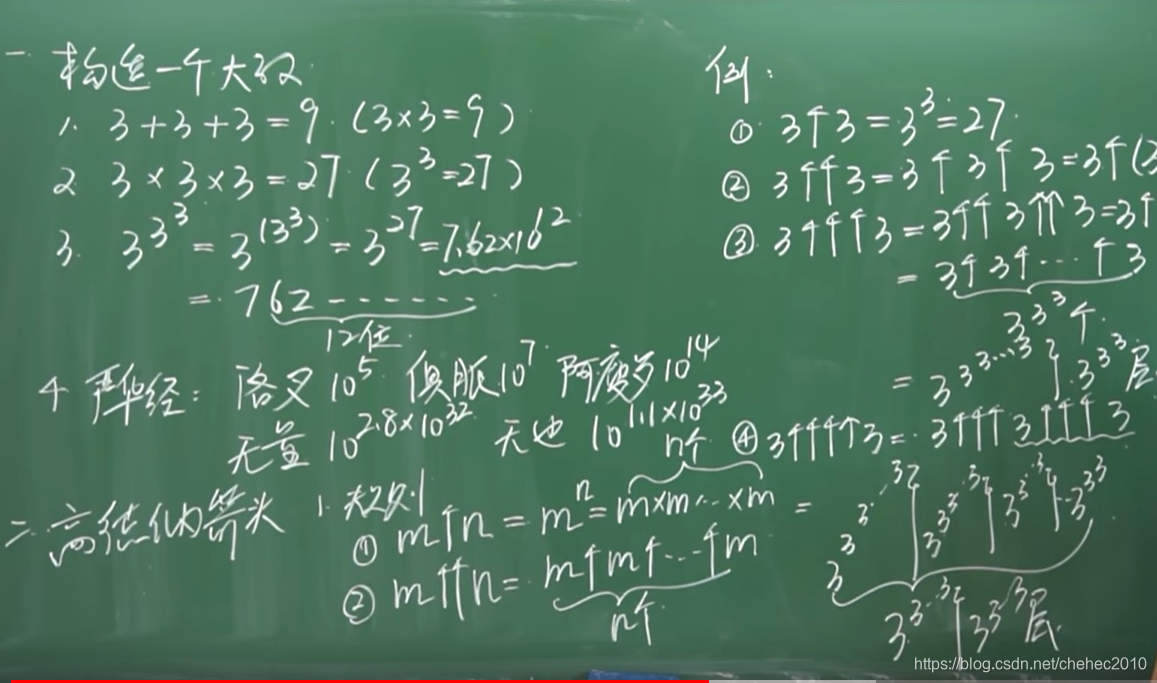 一 构造一个大数
1. 3+3+3=9 (3×3=9)
2. 3×3×3=27 (3^3=27)
3. 3^3^3=3^(3^3)=3^27=7.62×10^12
=762------
12位
4 严华经：洛叉10^5 俱胝10^7 阿庾多10^14
无量10^2.8×10^32
10^1.1×10^33
二.高德纳箭头 1.规则
① m↑n=m^n=m×m…×m
n个
② m↑↑n=m↑m↑…↑m
n个
例：
① 3↑3=3^3=27
② 3↑↑3=3↑3↑3=3↑(3
③ 3↑↑↑3=3↑↑3↑↑3=3↑
=3↑3↑…↑3
3^3^3个
=3^3^3…^3}3^3^3层
④ 3↑↑↑↑3=3↑↑↑3↑↑↑3
=3^3^3…^3}3^3^3…^3}3^3…^3}3^3^3
3^3…^3}3^3^3层
https://blog.csdn.net/chehec2010